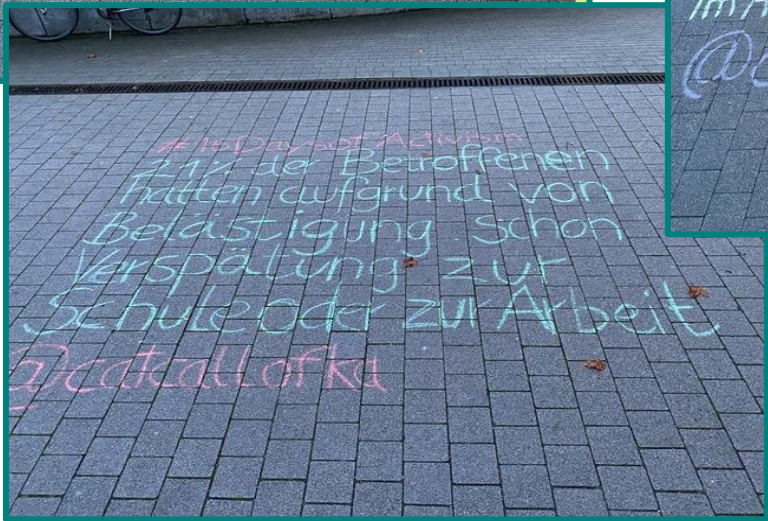 #16DaysofActivism
21% der Betroffenen
hatten aufgrund von
Belästigung schon
Verspätung zur
Schule oder zur Arbeit
@catcallofka